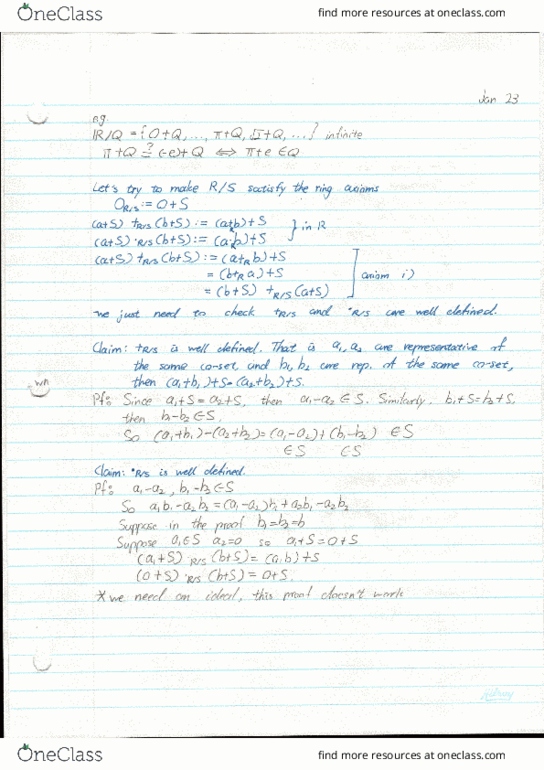 OneClass find more resources at oneclass.com
Jan 23
eg.
R/Q = {0+Q, ..., π+Q, √2+Q, ...} infinite
π+Q ?= (-e)+Q ⇔ π+e ∈Q
Let's try to make R/S satisfy the ring axioms
0R/S := 0+S
(a+S) +R/S (b+S) := (a+Rb)+S } in R
(a+S) ·R/S (b+S) := (a·Rb)+S
(a+S) +R/S (b+S) := (a+R b)+S
= (b+R a)+S ] axiom i)
= (b+S) +R/S (a+S)
we just need to check +R/S and ·R/S are well defined.
Claim: +R/S is well defined. That is a1, a2 are representative of
the same co-set, and b1, b2 are rep. of the same co-set,
then (a1+b1)+S=(a2+b2)+S.
Pf: Since a1+S=a2+S, then a1-a2 ∈ S. Similarly, b1+S=b2+S,
then b1-b2 ∈ S.
So (a1+b1)-(a2+b2)=(a1-a2)+(b1-b2) ∈S
∈S ∈S
Claim: ·R/S is well defined.
Pf: a1-a2, b1-b2∈S
So a1b1-a2b2=(a1-a2)b1+a2b1-a2b2
Suppose in the proof b1=b2=b
Suppose a1∈S a2=0 so a1+S=0+S
(a1+S) ·R/S (b+S)=(a1b)+S
(0+S) ·R/S (b+S)=0+S.
*we need an ideal, this proof doesn't work
OneClass find more resources at oneclass.com